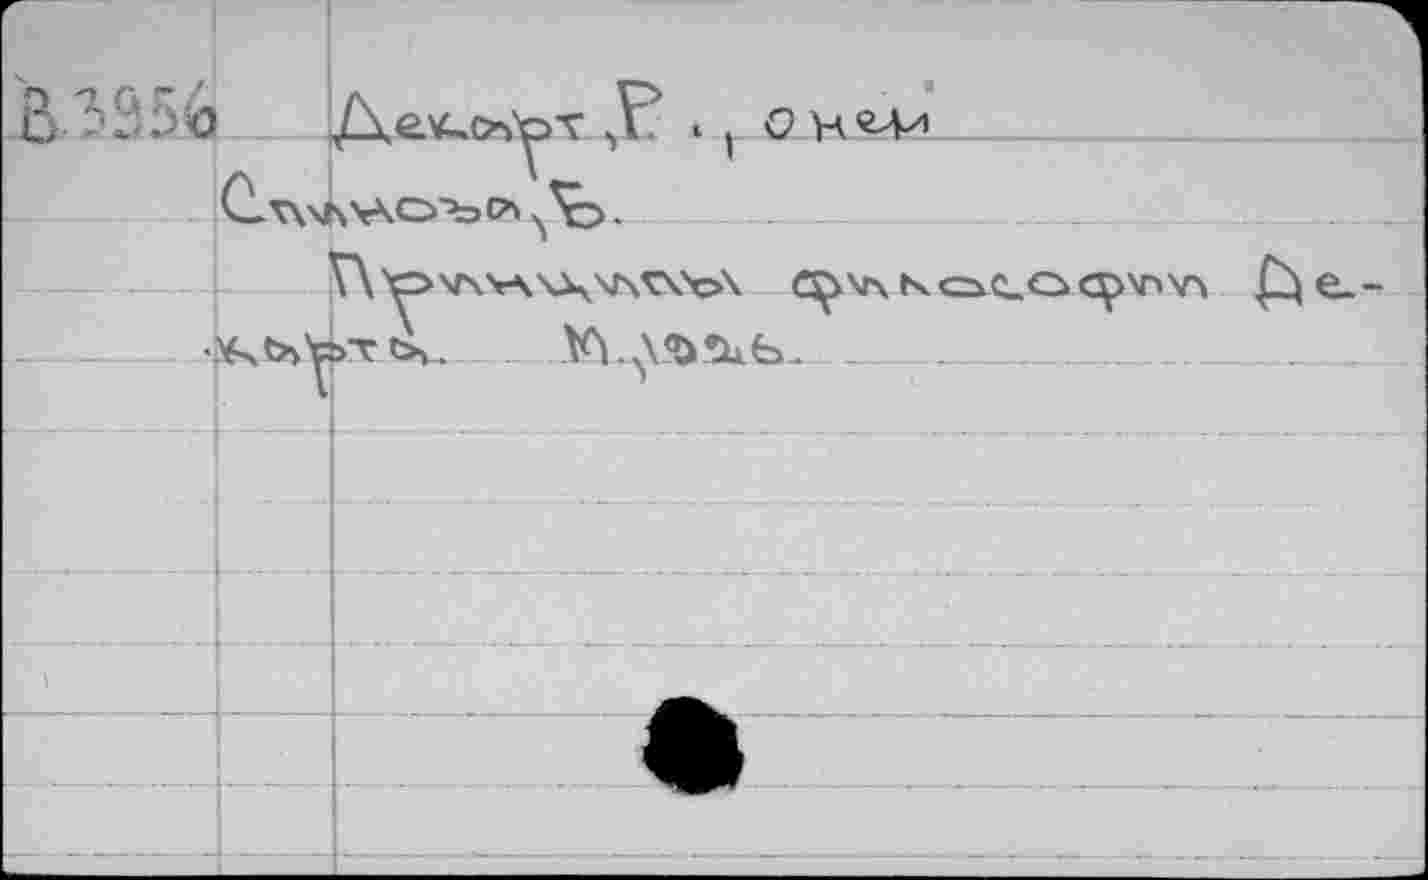 В3956 Декарт, Р., о нем
Спиноза, Б.
Принципы философии Де-
карта. М., 1926.